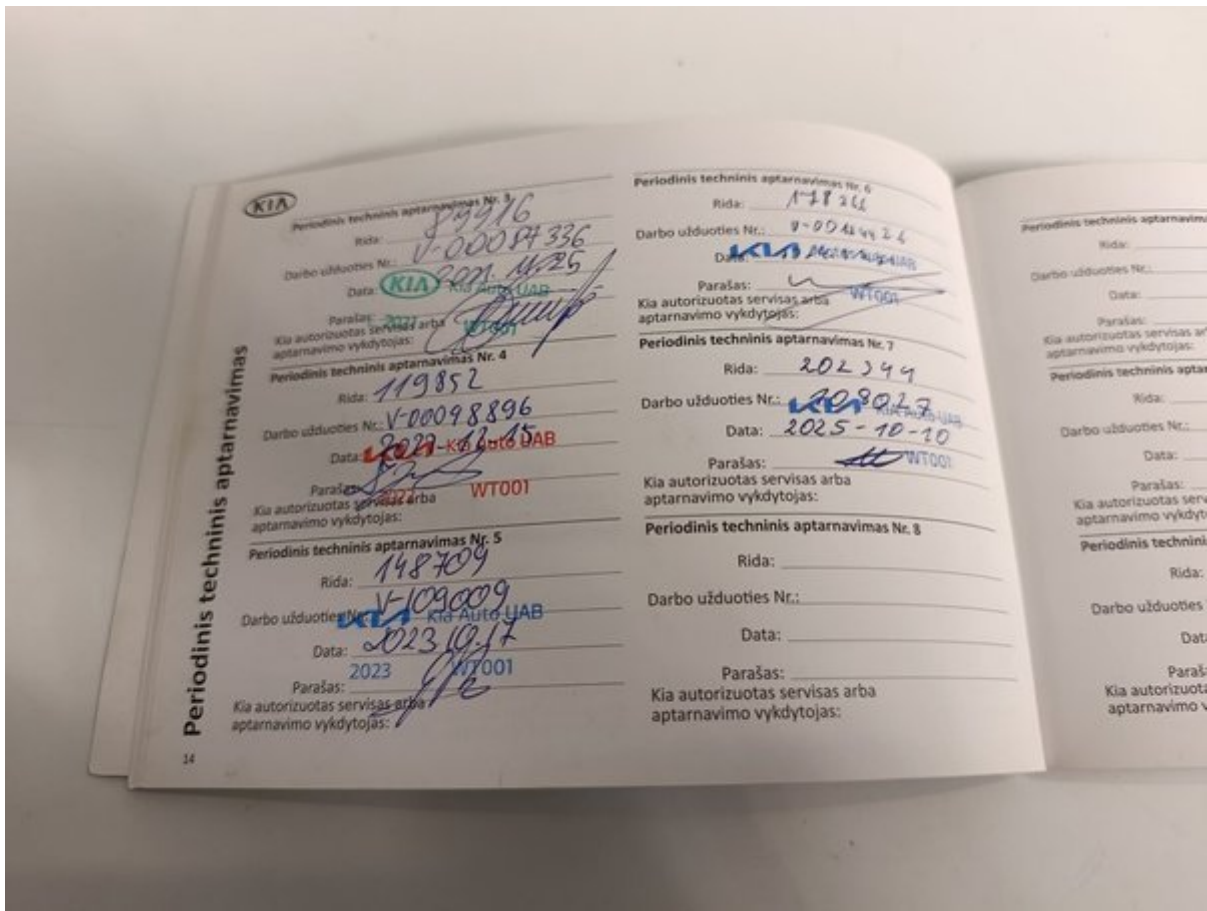 KIA
Periodinis techninis aptarnavimas
Periodinis techninis aptarnavimas Nr. 3
Rida: 89916
Darbo užduoties Nr.: V-00087336
Data: 2021. 11.25
KIA Kia Auto UAB
Parašas:
2021 WT001
Kia autorizuotas servisas arba
aptarnavimo vykdytojas:
Periodinis techninis aptarnavimas Nr. 4
Rida: 119852
Darbo užduoties Nr.: V-00098896
Data: 2022-12-15
KIA Kia Auto UAB
Parašas:
WT001
Kia autorizuotas servisas arba
aptarnavimo vykdytojas:
Periodinis techninis aptarnavimas Nr. 5
Rida: 148709
Darbo užduoties Nr.: V-109009
KIA Kia Auto UAB
Data: 2023.10.17
2023 WT001
Parašas:
Kia autorizuotas servisas arba
aptarnavimo vykdytojas:
14
Periodinis techninis aptarnavimas Nr. 6
Rida:
Darbo užduoties Nr.:
Data: KIA UAB
Parašas: WT001
Kia autorizuotas servisas arba
aptarnavimo vykdytojas:
Periodinis techninis aptarnavimas Nr. 7
Rida: 202344
Darbo užduoties Nr.: 208027
KIA Kia Auto UAB
Data: 2025-10-10
Parašas: WT001
Kia autorizuotas servisas arba
aptarnavimo vykdytojas:
Periodinis techninis aptarnavimas Nr. 8
Rida:
Darbo užduoties Nr.:
Data:
Parašas:
Kia autorizuotas servisas arba
aptarnavimo vykdytojas:
Periodinis techninis
Rida:
Darbo užduoties Nr.:
Data:
Parašas:
Kia autorizuotas
aptarnavimo vykdytojas:
Periodinis techninis
Rida:
Darbo užduoties Nr.:
Data:
Parašas:
Kia autorizuotas
aptarnavimo
Periodinis
Rida:
Darbo užduoties
Kia
aptarnavimo